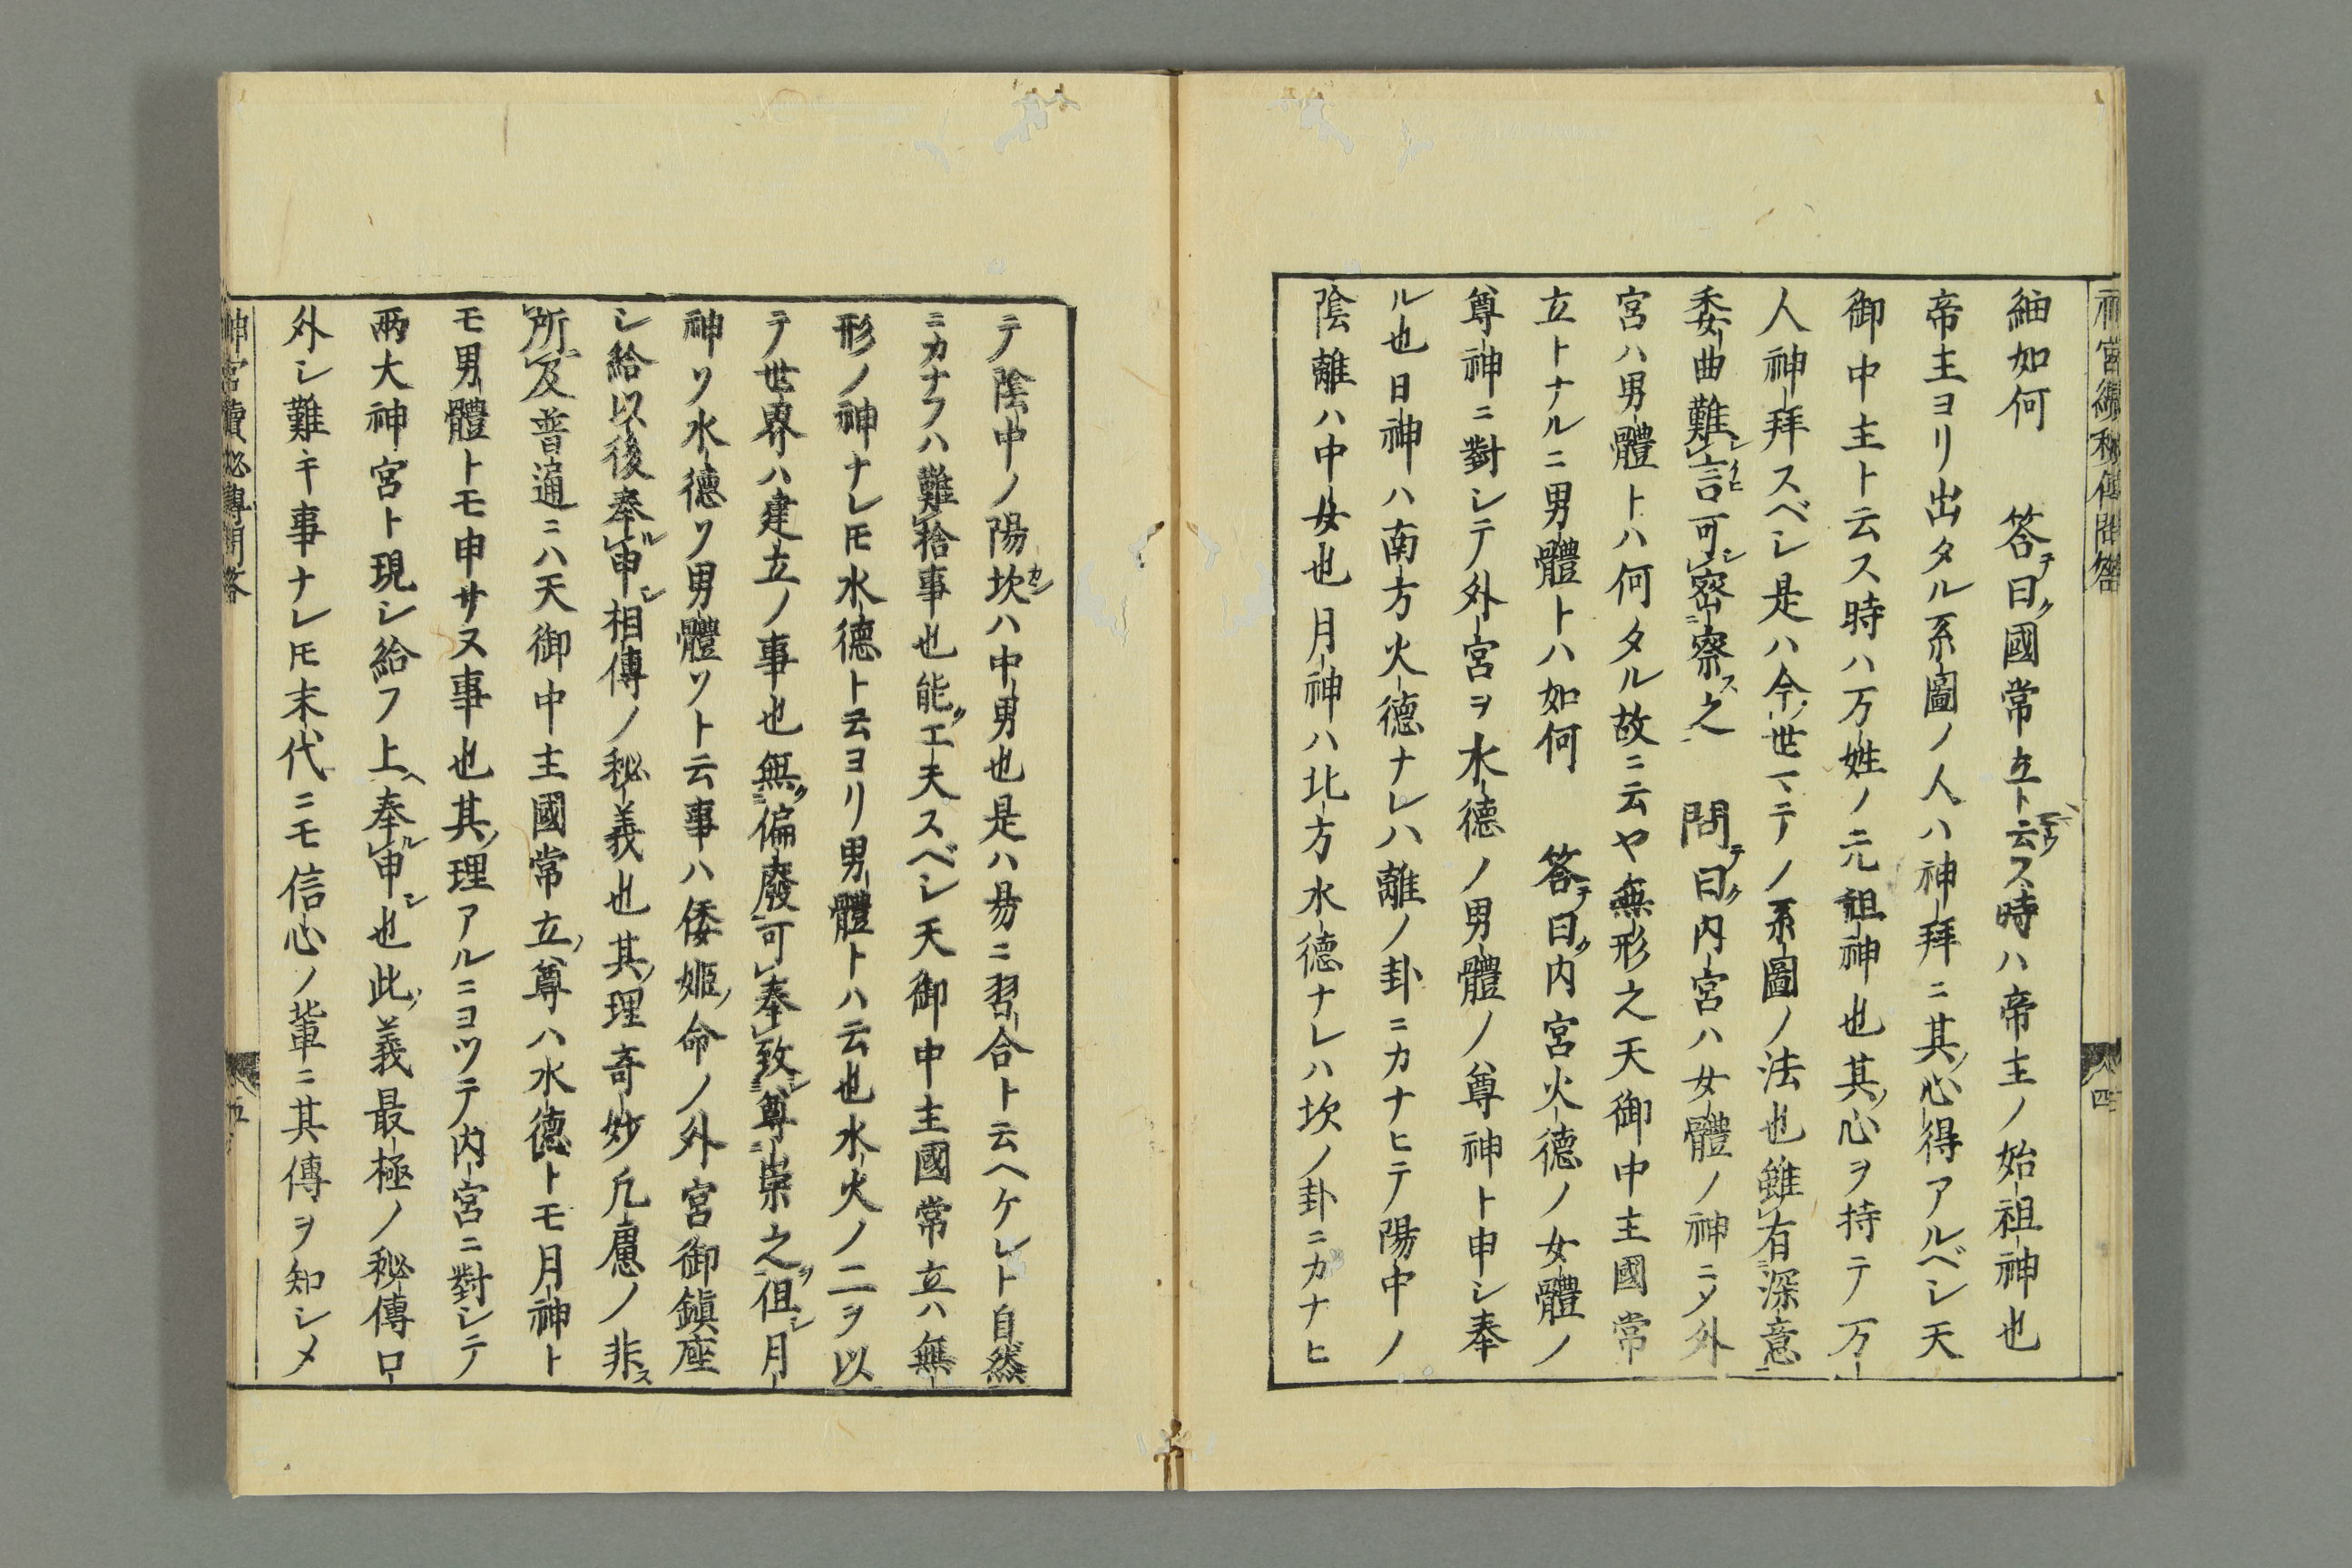 紬如何　答曰國常立ト云ス時ハ帝主ノ始祖神也
帝主ヨリ出タル系圖ノ人ハ神拜ニ其心得アルベシ天
御中主ト云ス時ハ万姓ノ元祖神也其心ヲ持テ万
人神拜スベシ是ハ今世マテノ系圖ノ法也雖有深意
委曲難言可密察之　問曰内宮ハ女體ノ神ニメ外
宮ハ男體トハ何タル故ニ云ヤ無形之天御中主國常
立トナルニ男體トハ如何　答曰内宮火德ノ女體ノ
尊神ニ對シテ外宮ヲ水德ノ男體ノ尊神ト申シ奉
ル也日神ハ南方火德ナレハ離ノ卦ニカナヒテ陽中ノ
陰離ハ中女也月神ハ北方水德ナレハ坎ノ卦ニカナヒ
テ陰中ノ陽坎ハ中男也是ハ易ニ習合ト云ヘケレト自然
ニカナフハ難捨事也能工夫スベシ天御中主國常立ハ無
形ノ神ナレ𪜈水德ト云ヨリ男體トハ云也水火ノ二ヲ以
テ世界ハ建立ノ事也無偏廢可奉致尊崇之但月
神ヲ水德ヲ男體ヲト云事ハ倭姬命ノ外宮御鎭座
シ給以後奉申相傳ノ秘義也其理奇妙凡慮ノ非
所及普通ニハ天御中主國常立尊ハ水德トモ月神ト
モ男體トモ申サヌ事也其理アルニヨツテ内宮ニ對シテ
兩大神宮ト現シ給フ上奉申也此義最極ノ秘傳口
外シ難キ事ナレ𪜈末代ニモ信心ノ輩ニ其傳ヲ知シメ
神宮續秘傳問答
四
五